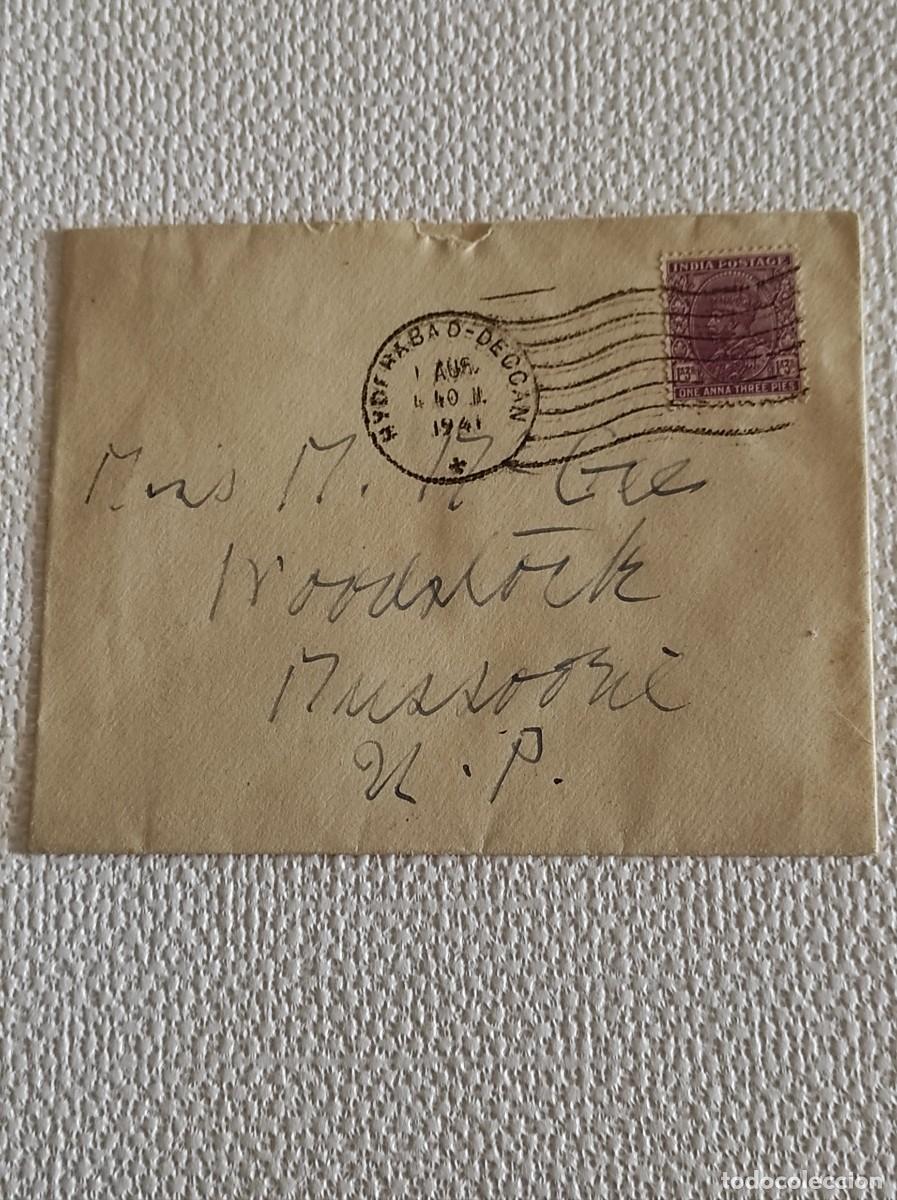 INDIA POSTAGE
1A3P 1A3P
ONE ANNA THREE PIES
HYDERABAD-DECCAN
1 AUG.
1941
Miss M. Mc Gee
Woodstock
Mussoorie
U.P.
todocoleccion